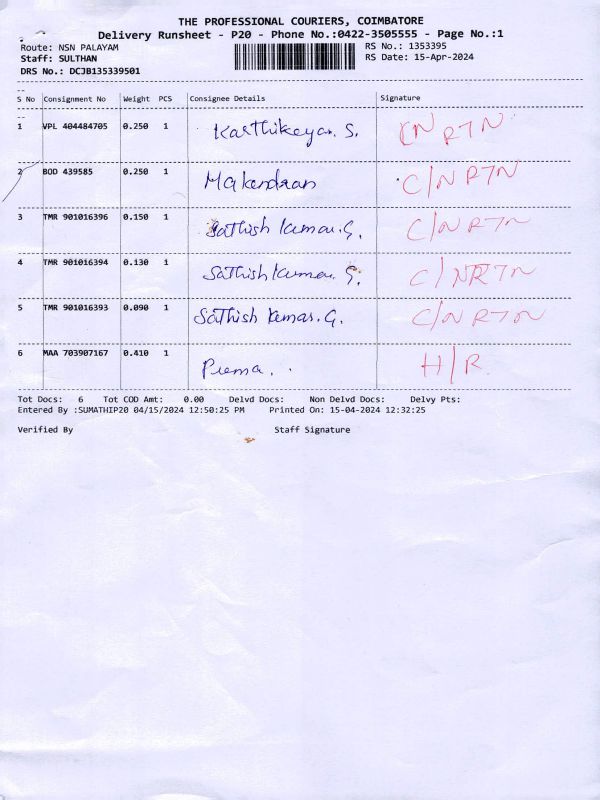 THE PROFESSIONAL COURIERS, COIMBATORE
Delivery Runsheet - P20 - Phone No.:0422-3505555 - Page No.:1
Route: NSN PALAYAM RS No.: 1353395
Staff: SULTHAN RS Date: 15-Apr-2024
DRS No.: DCJB135339501
S No Consignment No Weight PCS Consignee Details Signature
1 VPL 404484705 0.250 1 Karthikeyan. S. C/N R7N
2 BOD 439585 0.250 1 Mahendran C/N R7N
3 TMR 901016396 0.150 1 Sathish kumar. G. C/N R7N
4 TMR 901016394 0.130 1 Sathish kumar G. C/N R7N
5 TMR 901016393 0.090 1 Sathish kumar. G. C/N R7N
6 MAA 703907167 0.410 1 Prema. H/R.
Tot Docs: 6 Tot COD Amt: 0.00 Delvd Docs: Non Delvd Docs: Delvy Pts:
Entered By :SUMATHIP20 04/15/2024 12:50:25 PM Printed On: 15-04-2024 12:32:25
Verified By Staff Signature